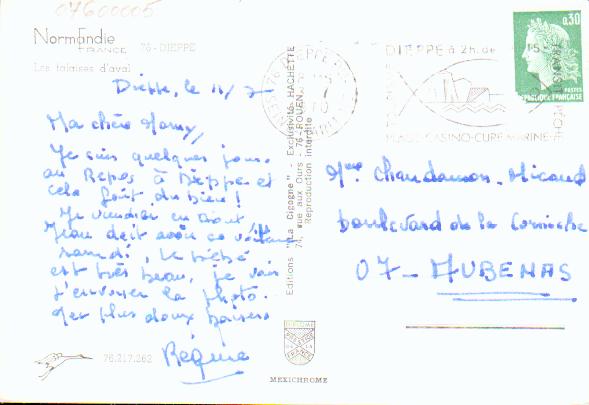 07600005
Normandie
FRANCE 76-DIEPPE
Les falaises d'aval
Dieppe, le 11/7
Ma chère Mamy,
Je suis quelques jours
au Repos à Dieppe et
cela fait du bien!
Je viendrai en Aout
Jean doit avoir sa voiture
samedi, le bébé
est très beau, je vais
t'envoyer la photo.
Mes plus doux baisers
Régine
76.217.262
MEXICHROME
Editions "La Cigogne" - Exclusivité HACHETTE
74, rue aux Ours - 76-ROUEN
Reproduction interdite
76 DIEPPE
DIEPPE à 2h. de PARIS
PLAGE-CASINO-CURE MARINE
0,30
POSTES
REPUBLIQUE FRANÇAISE
Mme Chaudamon-Micaud
boulevard de la Corniche
07-AUBENAS